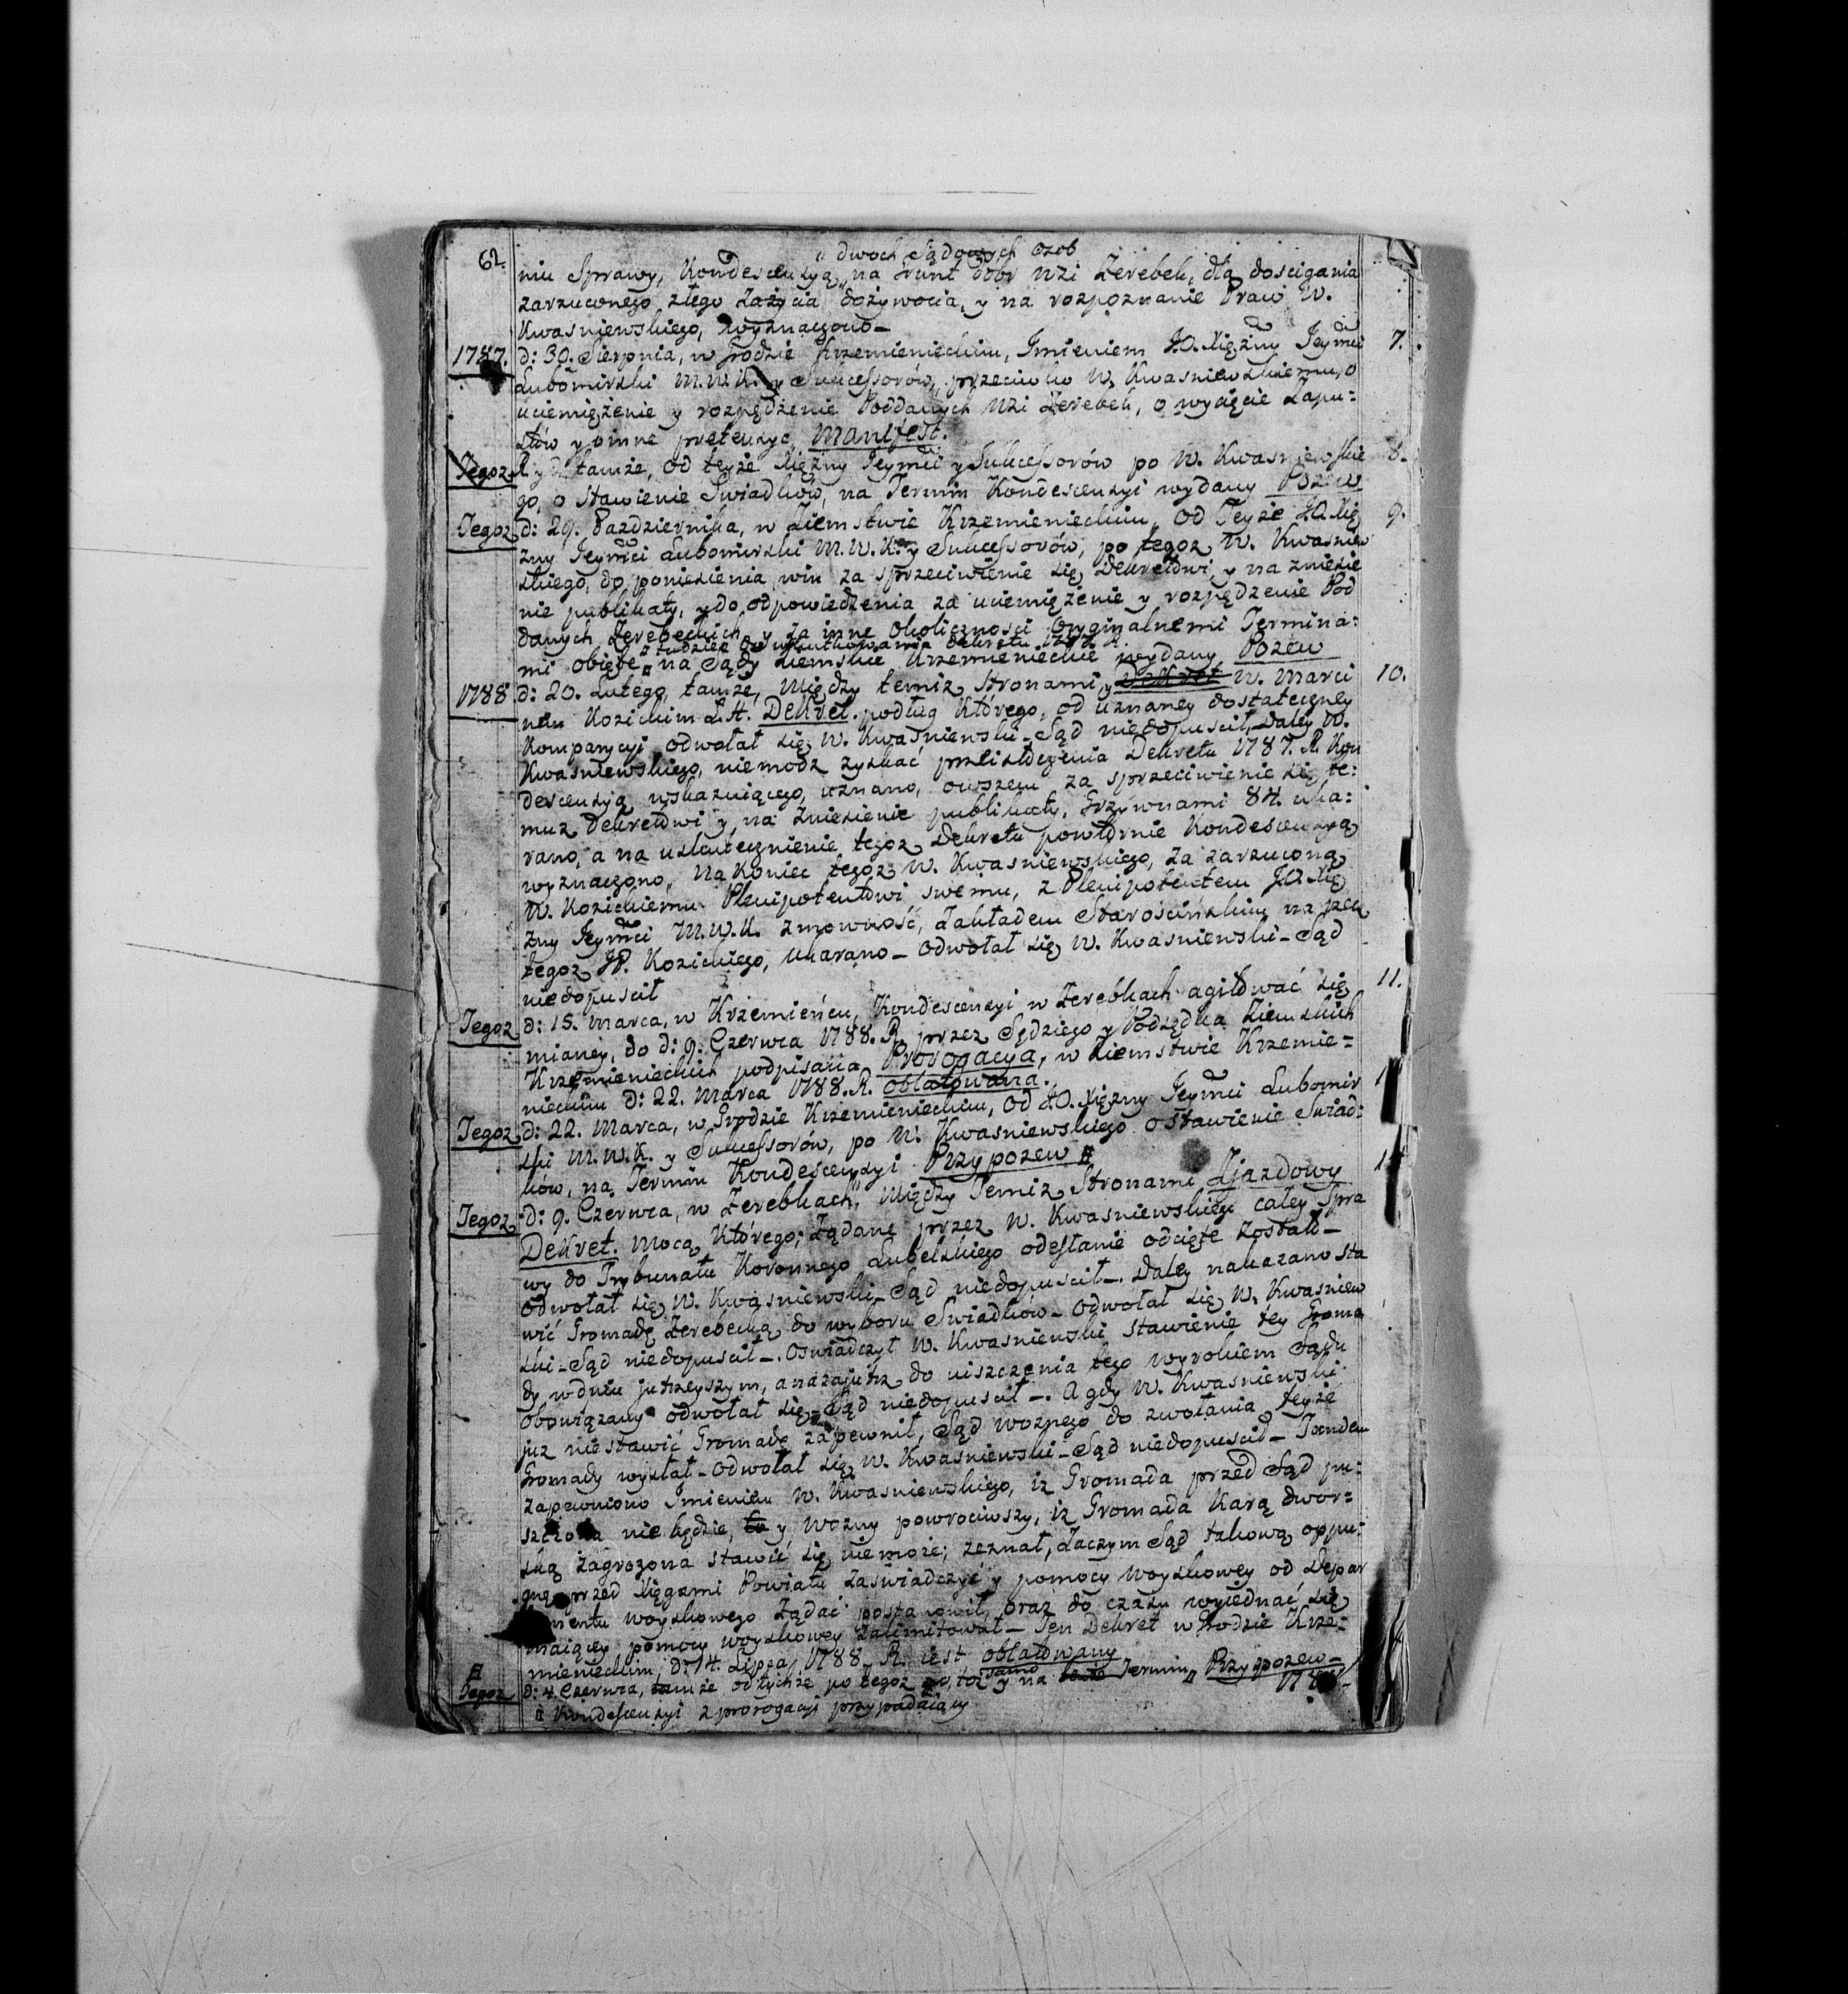 62.
„ dwoch Sądowych Ozob
niu Sprawy, Kondescensyą „ na Grunt dobr Wzi Zerebek, dla doscigania
zarzuconego złego Zażycia dożywocia, y na rozpoznanie Praw W.
Kwasniewskiego, wyznaczono –
1787. d: 30. Sierpnia, w Grodzie Krzemienieckim, Imieniem J.O. Xiężny Jeymci 7.
Lubomirski M.W.K. y Sukcessorów, przeciwko W. Kwasniewskiemu, o
uciemiężenie y rozpędzenie Poddanych Wzi Zerebek, o wycięcie Zapu:
stów y inne pretensye, Manifest.
Tegoż R. y d: tamże, od teyże Xiężny Jeymci y Sukcessorów po W. Kwasniewskie 8.
go, o stawienie Swiadków, na Termin Kondescensyi wydany Pozew
Tegoż d: 29. Pazdziernika, w Ziemstwie Krzemienieckim, Od Teyże JO. Xię 9.
żny Jeymci Lubomirski M.W.K. y Sukcessorów, po tegoż W. Kwasniew
skiego, do poniesienia win za sprzeciwienie się Dekretowi, y na zniesie
nie publikaty, y do odpowiedzenia za uciemiężenie y rozpędzenie Pod
danych Zerebeckich y za inne okoliczności Oryginalnemi Termina:
„ tudzież o uskutkowania Dekretu 1787. R.
mi obięte „ na Sądy Ziemskie Krzemienieckie wydany Pozew
1788. d: 20. Lutego, tamże, Między temiż Stronami, y Dekret W. Marci 10.
nem Kozickim L.H. Dekret. podług Którego, od uznaney dostateczney
Komparycyi odwołał się W. Kwasniewski – Sąd niedopuscił, Daley W.
Kwasniewskiego, niemodz zyskać przeistoczenia Dekretu 1787. R. Kon
descensyą wskazuiącego, uznano, owszem za sprzeciwienie się te:
muż Dekretowi y na zniesienie publikaty, Grzywnami 84. uka:
rano, a na uskutecznienie tegoż Dekretu powtornie Kondescensyą
wyznaczono, Nakoniec tegoż W. Kwasniewskiego, za zarzuconą
W. Kozickiemu Plenipotentowi swemu, z Plenipotentem JO. Xię
żny Jeymci M.W.K. zmowność, Zakładem Starościńskim na rzecz
tegoż W. Kozickiego, ukarano – odwołał się W. Kwasniewski – Sąd
niedopuscił
Tegoż d: 15. Marca, w Krzemieńcu, Kondescensyi w Zerebkach agitować się 11.
mianey, do d: 9. Czerwca 1788. R. przez Sędziego y Podsędka Ziemskich
Krzemienieckich podpisana Prorogacya, w Ziemstwie Krzemie=
nieckim d: 22. Marca 1788. R. oblatowana.
Tegoż d: 22. Marca, w Grodzie Krzemienieckim, Od J.O. Xiężny Jeymci Lubomir
ski M.W.K. y Sukcessorów, po W. Kwasniewskiego o stawienie Swiad:
ków, na Termin Kondescensyi Przypozew
Tegoż d: 9. Czerwca, w Zerebkach, Między Temiż Stronami Zjazdowy
Dekret. Mocą Którego; Żądane przez W. Kwasniewskiego całey Spra
wy do Trybunału Koronnego Lubelskiego odesłanie odcięte zostało –
odwołał się W. Kwasniewski – Sąd niedopuscił –. Daley nakazano sta
wić Gromadę Zerebecką do wyboru Swiadków – odwołał się W. Kwasniew
ski – Sąd niedopuscił –. Oswiadczył W. Kwasniewski stawienie tey Groma
dy w dniu jutrzeyszym, a nazajutrz do uiszczenia tego wyrokiem Sądu
obowiązany odwołał się – Sąd niedopuscił –. A gdy W. Kwasniewski
już niestawić Gromadę zapewnił, Sąd woznego do zwołania teyże
Gromady wysłał – odwołał się W. Kwasniewski – Sąd niedopuscił – Tandem
zapewniono Imieniem W. Kwasniewskiego, iż Gromada przed Sąd pu:
szczona nie będzie, to y Wozny powrociwszy, iż Gromada Karą dwor=
ską zagrożona stawić się niemoże; zeznał, Zaczym Sąd takową oppu:
gną przed Xięgami Powiatu zaświadczyć y pomocy Woyskowey od Depar
mentu woyskowego żądać postanowił, oraz do czasu wyiednać się
maiącey pomocy woyskowey zalimitował – Ten Dekret w Grodzie Krze=
mienieckim, d: 14. Lipca 1788. R. iest oblatowany
Tegoż d: 4. Czerwca, tamże od tychże po tegoż o toż samo y na Termin „ Przypozew –
„ Kondescensyi z prorogacyi przypadaiący